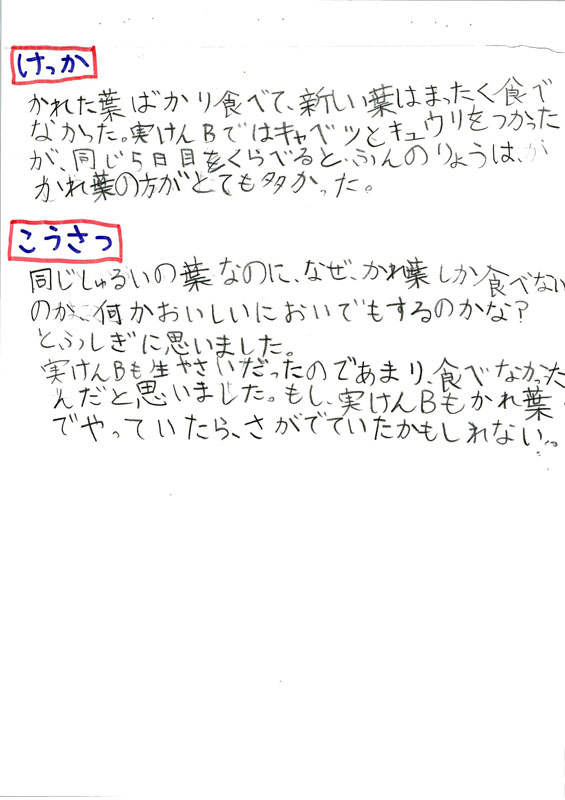 けっか
かれた葉ばかり食べて、新しい葉はまったく食べ
なかった。実けんBではキャベツとキュウリをつかった
が、同じ5日目をくらべると、ふんのりょうは、
かれ葉の方がとても多かった。
こうさつ
同じしゅるいの葉なのに、なぜ、かれ葉しか食べない
のか、何かおいしいにおいでもするのかな?
とふしぎに思いました。
実けんBも生やさいだったのであまり、食べなかった
んだと思いました。もし、実けんBもかれ葉
でやっていたら、さがでていたかもしれない。